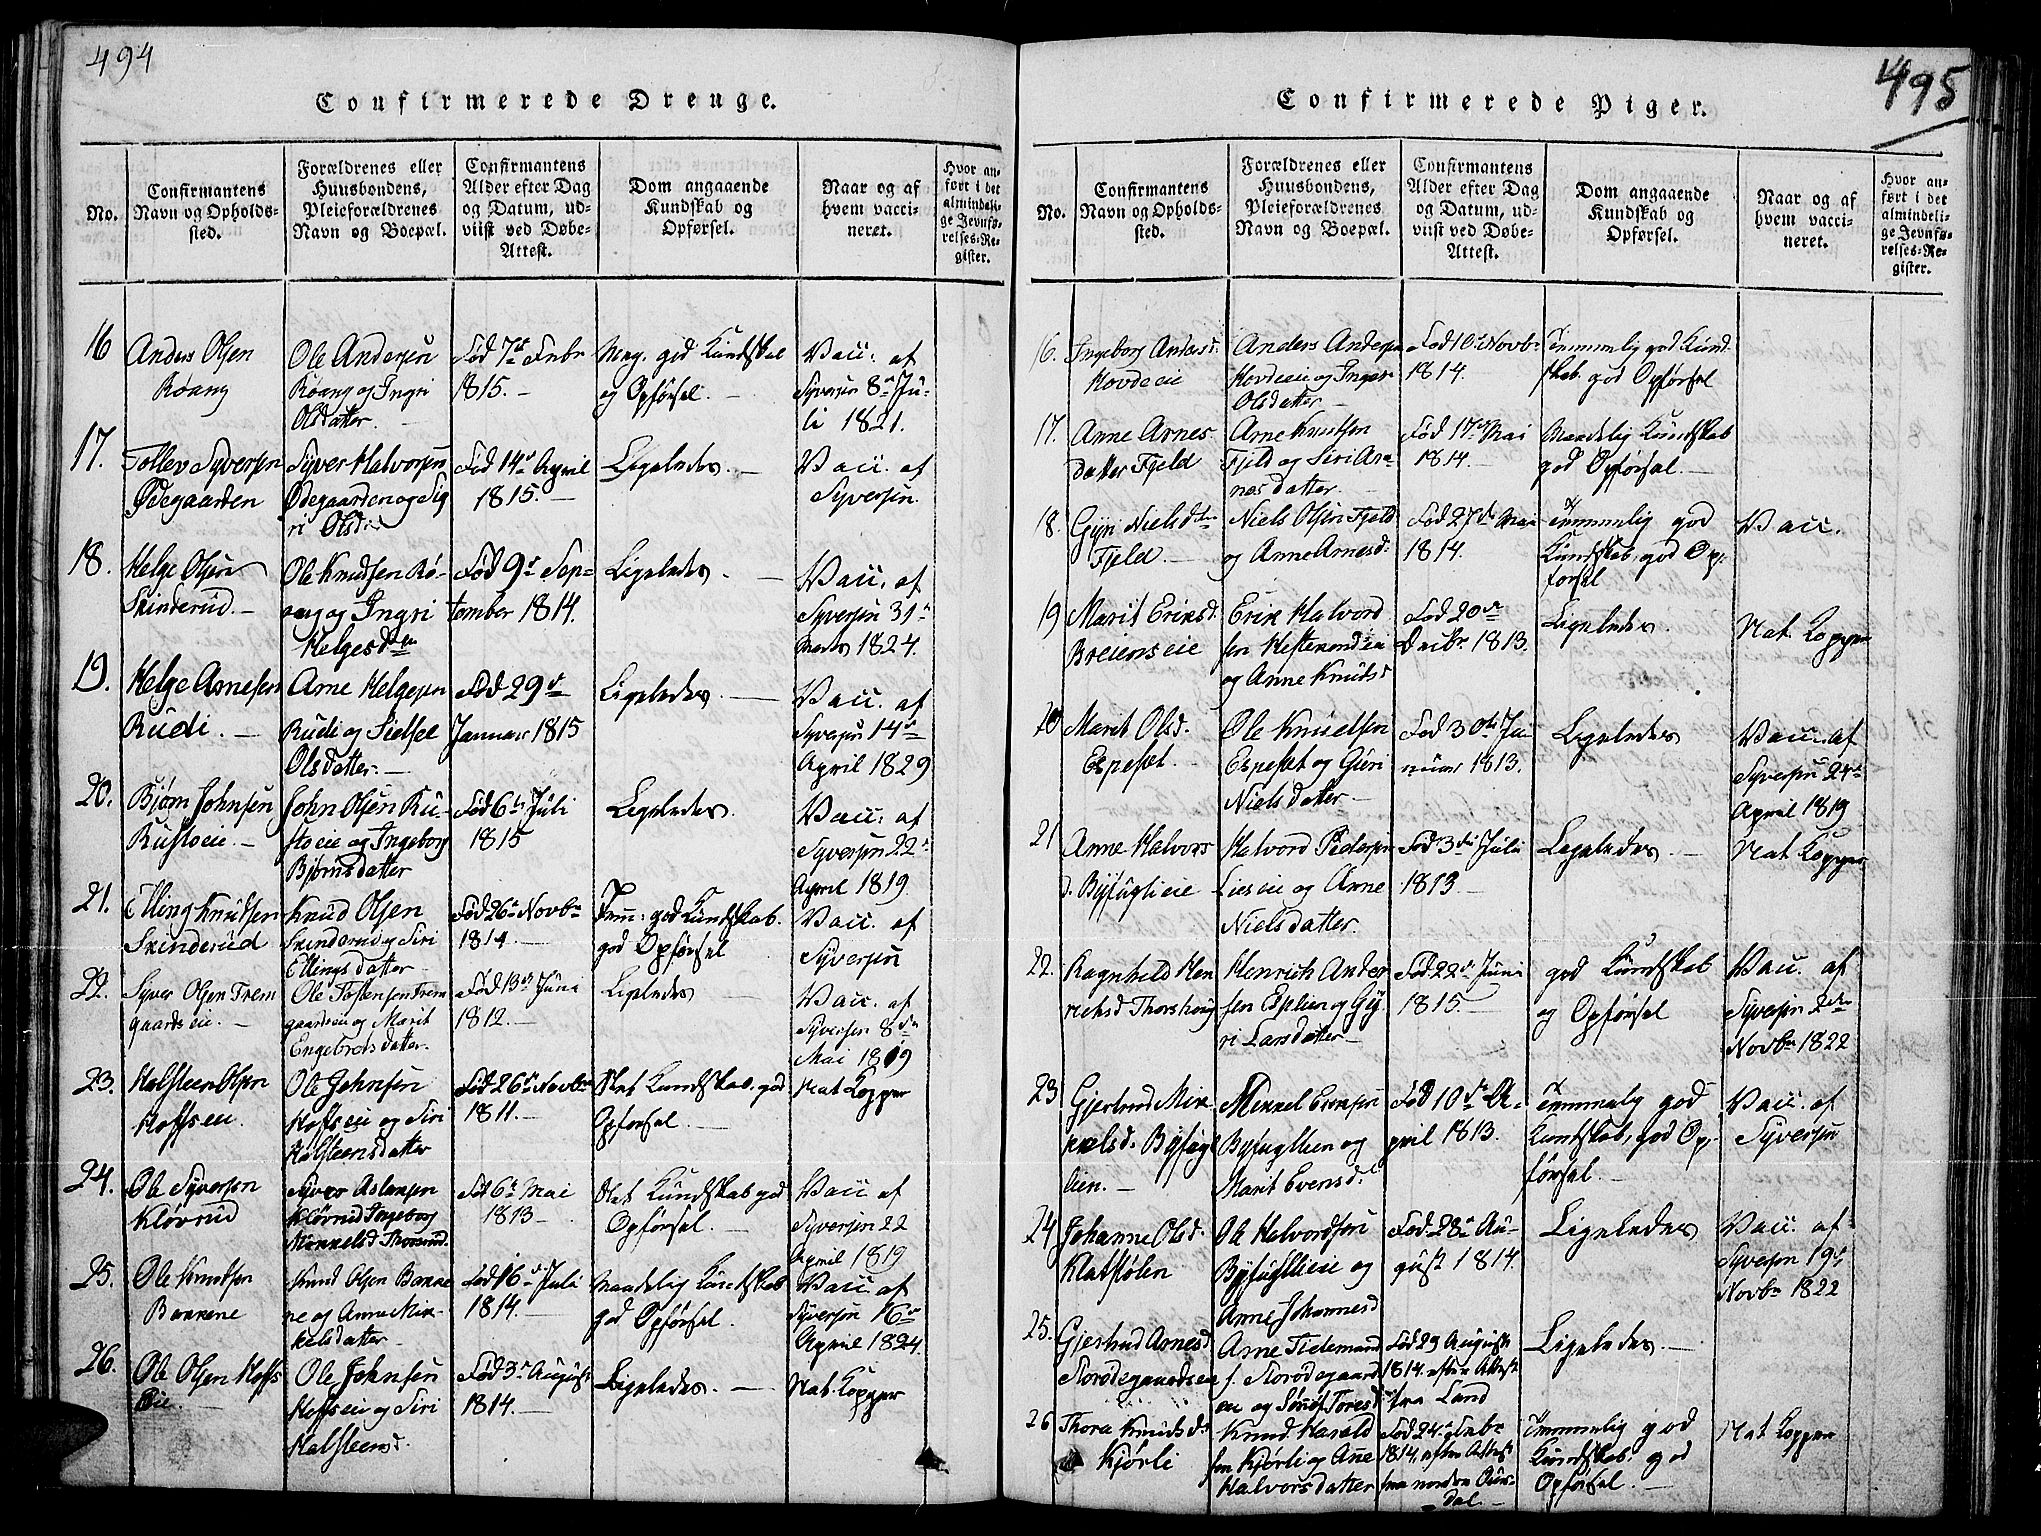 494
Confirmerede Drenge.
No.
Confirmantens
Navn og Opholds-
sted.
Forældrenes eller
Huusbondens,
Pleieforældrenes
Navn og Boepæl.
Confirmantens
Alder efter Dag
og Datum, ud-
viist ved Døbe-
Attest.
Dom angaaende
Kundskab og
Opførsel.
Naar og af
hvem vacci-
neret.
Hvor an-
ført i det
almindeli-
ge Jevnfø-
relses-Re-
gister.
16
Anders Olsen
Røang
Ole Andersen
Røang og Ingri
Olsdatter.
Fød 7de Febr
1815.
Meg. god Kundskab
og Opførsel.
Vacc. af
Syversen 8de Ju-
li 1821.
17.
Tollev Syversen
Ødegaarden
Syver Halvorsen
Ødegaarden og Sig
ri Olsd.
Fød 14de April
1815.
Ligeledes.
Vacc. af
Syversen.
18.
Helge Olsen
Skinderud.
Ole Knudsen Rø-
ang og Ingri
Helgesdtr
Fød 9de Sep-
tember 1814.
Ligeledes.
Vacc. af
Syversen 31te
Marts 1824.
19.
Helge Arnesen
Rudi.
Arne Helgesen
Rudi og Sidsel
Olsdatter.
Fød 29de
Januar 1815
Ligeledes.
Vacc. af
Syversen 14de
April 1829
20.
Bjørn Johnsen
Rustoeie.
John Olsen Ru-
stoeie og Ingeborg
Bjørnsdatter
Fød 6te Juli
1815
Ligeledes.
Vacc. af
Syversen 22de
April 1819.
21.
Elling Knudsen
Skinderud
Knud Olsen
Skinderud og Siri
Ellingsdatter
Fød 26de Novbr
1814.
Tem: god Kundskab.
god Opførsel
Vacc. af
Syversen
22.
Syver Olsen Trem
gaardseie.
Ole Tostensen Trem
gaardseie og Marit
Engebretsdatter.
Fød 13de Juni
1812.
Ligeledes
Vacc. af
Syversen 8de
Mai 1819
23.
Halsteen Olsen
Hoffseie.
Ole Johnsen
Hoffseie og Siri
Halsteensdatter
Fød 26de Novbr
1811.
Slet Kundskab. god
Opførsel.
Nat. Kopper
24.
Ole Syversen
Kløvrud
Syver Aslaksen
Kløvrud Ingeborg
Mikkelsd
Fød 6te Mai
1813
Slet Kundskab god
Opførsel.
Vacc af
Syversen 22
April 1819
25.
Ole Knudsen
Bakkene
Knud Olsen Bakke
ne og Anne Mik-
kelsdatter
Fød 16de Juli
1814.
Maadelig Kundskab
god Opførsel.
Vacc af
Syversen 16de
April 1824.
26.
Ole Olsen Hoffs
eie.
Ole Johnsen
Hoffseie og Siri
Halsteensd.
Fød 3de August
1814.
Ligeledes.
Nat. Kopper
495
Confirmerede Piger.
No.
Confirmantens
Navn og Opholds-
sted.
Forældrenes eller
Huusbondens,
Pleieforældrenes
Navn og Boepæl.
Confirmantens
Alder efter Dag
og Datum, ud-
viist ved Døbe-
Attest.
Dom angaaende
Kundskab og
Opførsel.
Naar og af
hvem vacci-
neret.
Hvor an-
ført i det
almindeli-
ge Jevnfø-
relses-Re-
gister.
16.
Ingeborg Andersd.
Hovdeeie
Anders Andersen
Hovdeeie og Inger
Olsdatter
Fød 10de Novbr
1814.
Temmelig god Kund
skab. god Opførsel
17.
Anne Arnes
datter Fjeld
Arne Knudsen
Fjeld og Siri Ar-
nesdatter.
Fød 17de Mai
1814.
Maadelig Kundskab
god Opførsel.
18.
Nielsdtr
Fjeld.
Niels Olsen Fjeld
og Anne Arnesd.
Fød 27de Mai
1814.
Temmelig god
Kundskab, god Op-
førsel
Vacc.
19
Marit Eriksd.
Breienseie
Erik Halvord
sen
og Anne Knudsd
Fød 20de
Decbr. 1813.
Ligeledes.
Nat. Kopper
20
Marit Olsd.
Espeset.
Ole Knudsen
Espeset og Guri
Nielsdatter
Fød 30te Ja
nuar 1813.
Ligeledes
Vacc. af
Syversen 24de
April 1819
21
Anne Halvors
d. Byfuglieie
Halvord Pedersen
Lieseie og Anne
Nielsdatter.
Fød 3die Juli
1813.
Ligeledes.
Nat. Kopper
22.
Ragnhild Hen
richsd Thorshoug
Henrich Ander
sen Esplien og Gy
ri Larsdatter
Fød 22de Juni
1815.
god Kundskab
og Opførsel
Vacc. af
Syversen 2den
Novbr 1822
23
Gjertrud Mik
kelsd. Byfug
lien.
Mikkel Evensen
Byfugllien og
Marit Evensd.
Fød 10de A-
pril 1813.
Temmelig god
Kundskab, god Op-
førsel.
Vacc. af
Syversen
24
Johanne Olsd.
Klatstølen
Ole Halvordsen
Byfugllieie og
Anne Johannesd
Fød 28de Au-
gust 1814.
Ligeledes
Vacc. af
Syversen 19de
Novbr 1822
25.
Gjertrud Arnesd
Storødegaardseie
Arne Tidemand
s. Storødegaards
eie og Toresd
Fød 29 August
1814. efter Attest
fra Land
Ligeledes.
26
Thora Knudsd.
Kjørli
Knud Harald
sen Kjørli og Ane
Halvorsdatter
Fød 24de Febr
1814, efter Attest
fra nordre Aur-
dal.
Temmelig god
Kundskab. god
Opførsel.
Nat Kopper